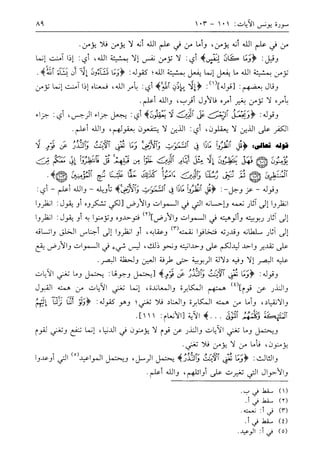 سورة يونس الآيات: ١٠١ - ١٠٣ ٨٩
من في علم الله أنه يؤمن، وأما من في علم الله أنه لا يؤمن فلا يؤمن.
وقيل: ﴿وَمَا كَانَ لِنَفْسٍ﴾ أي: لا تؤمن نفس إلا بمشيئة الله، أي: إذا آمنت إنما
تؤمن بمشيئة الله ما يفعل إنما يفعل بمشيئة الله؛ كقوله: ﴿وَمَا تَشَاءُونَ إِلَّا أَن يَشَاءَ اللَّهُ﴾.
وقال بعضهم: [قوله](١): ﴿إِلَّا بِإِذْنِ اللَّهِ﴾ أي: بأمر الله، فمعناه إذا آمنت إنما تؤمن
بأمره، لا تؤمن بغير أمره فالأول أقرب، والله أعلم.
وقوله: ﴿وَيَجْعَلُ الرِّجْسَ عَلَى الَّذِينَ لَا يَعْقِلُونَ﴾ أي: يجعل جزاء الرجس، أي: جزاء
الكفر على الذين لا يعقلون، أي: الذين لا ينتفعون بعقولهم، والله أعلم.
قوله تعالى: ﴿قُلِ انظُرُوا مَاذَا فِي السَّمَاوَاتِ وَالْأَرْضِ وَمَا تُغْنِي الْآيَاتُ وَالنُّذُرُ عَن قَوْمٍ لَّا
يُؤْمِنُونَ فَهَلْ يَنتَظِرُونَ إِلَّا مِثْلَ أَيَّامِ الَّذِينَ خَلَوْا مِن قَبْلِهِمْ قُلْ فَانتَظِرُوا إِنِّي مَعَكُم مِّنَ
الْمُنتَظِرِينَ ثُمَّ نُنَجِّي رُسُلَنَا وَالَّذِينَ آمَنُوا كَذَلِكَ حَقًّا عَلَيْنَا نُنجِ الْمُؤْمِنِينَ﴾.
وقوله - عز وجل-: ﴿قُلِ انظُرُوا مَاذَا فِي السَّمَاوَاتِ وَالْأَرْضِ﴾ تأويله - والله أعلم - أي:
انظروا إلى آثار نعمه وإحسانه التي في السموات والأرض [لكي تشكروه أو يقول: انظروا
إلى آثار ربوبيته وألوهيته في السموات والأرض](٢) فتوحدوه وتؤمنوا به أو يقول: انظروا
إلى آثار سلطانه وقدرته فتخافوا نقمته(٣) وعقابه، أو انظروا إلى أجناس الخلق واتساقه
على تقدير واحد ليدلكم على وحدانيته ونحو ذلك، ليس شيء في السموات والأرض يقع
عليه البصر إلا وفيه دلالة الربوبية حتى طرفة العين ولحظة البصر.
وقوله: ﴿وَمَا تُغْنِي الْآيَاتُ وَالنُّذُرُ عَن قَوْمٍ﴾ [يحتمل وجوهًا: يحتمل وما تغني الآيات
والنذر عن قوم](٤) همتهم المكابرة والمعاندة، إنما تغني الآيات من همته القبول
والانقياد، وأما من همته المكابرة والعناد فلا تغني؛ وهو كقوله: ﴿وَلَوْ أَنَّنَا نَزَّلْنَا إِلَيْهِمُ
الْمَلَائِكَةَ وَكَلَّمَهُمُ الْمَوْتَى ...﴾ الآية [الأنعام: ١١١].
ويحتمل وما تغني الآيات والنذر عن قوم لا يؤمنون في الدنيا، إنما تنفع وتغني لقوم
يؤمنون، فأما من لا يؤمن فلا تغني.
والثالث: ﴿وَمَا تُغْنِي الْآيَاتُ وَالنُّذُرُ﴾ يحتمل الرسل، ويحتمل المواعيد(٥) التي أوعدوا
والأحوال التي تغيرت على أوائلهم، والله أعلم.
(١) سقط في ب.
(٢) سقط في أ.
(٣) في أ: نعمته.
(٤) سقط في أ.
(٥) في أ: الوعيد.